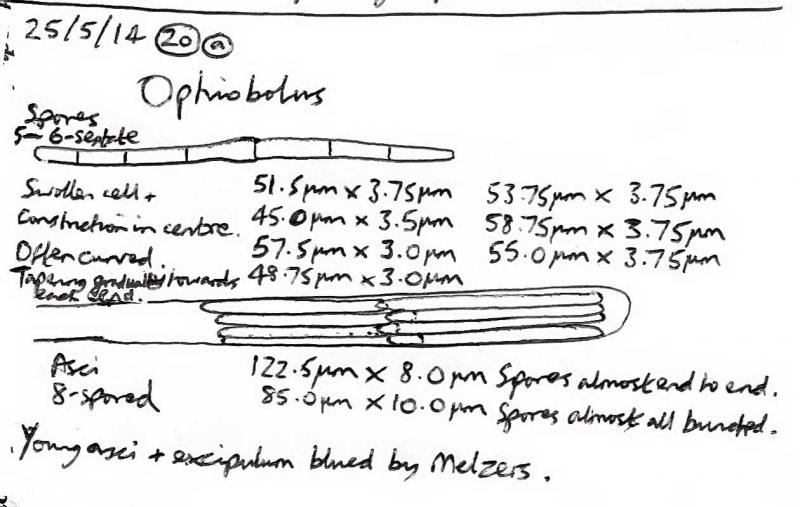 25/5/14 20 a
Ophiobolus
Spores
5-6-septate
Swollen cell +
51.5µm x 3.75µm 53.75µm x 3.75µm
Constriction in centre.
45.0µm x 3.5µm 58.75µm x 3.75µm
Often curved.
57.5µm x 3.0µm 55.0µm x 3.75µm
Tapering gradually towards
48.75µm x 3.0µm
each end.
Asci
122.5µm x 8.0µm Spores almost end to end.
8-spored
85.0µm x 10.0µm Spores almost all bunched.
Young asci + excipulum blued by Melzers.